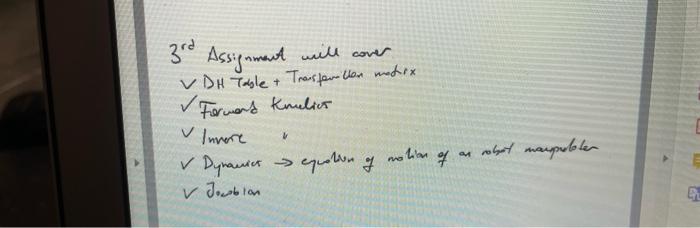 3rd Assignment will cover
✓ DH Table + Transformation matrix
✓ Forward Kinematics
✓ Inverse "
✓ Dynamics → equation of motion of an robot manipulator
✓ Jacobian